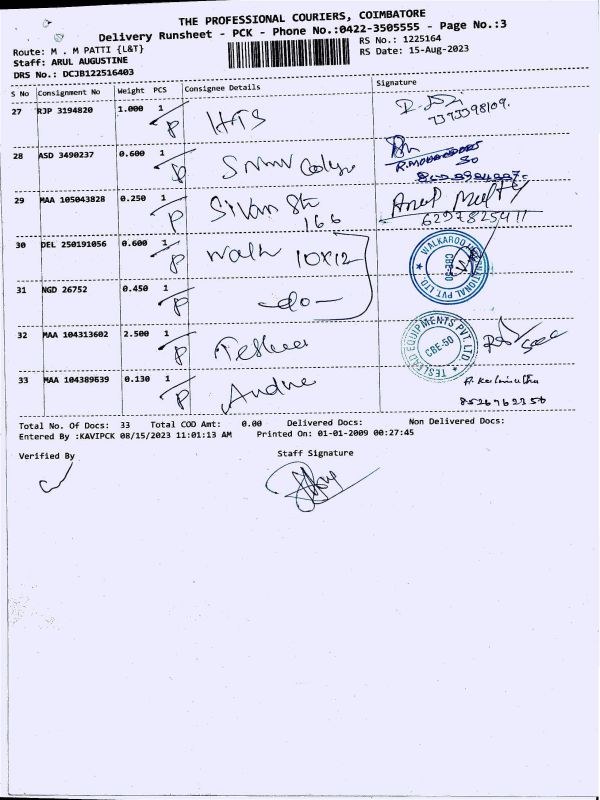 THE PROFESSIONAL COURIERS, COIMBATORE
Delivery Runsheet - PCK - Phone No.:0422-3505555 - Page No.:3
Route: M . M PATTI {L&T}
RS No.: 1225164
Staff: ARUL AUGUSTINE
RS Date: 15-Aug-2023
DRS No.: DCJB122516403
S No Consignment No Weight PCS Consignee Details Signature
27 RJP 3194820 1.000 1 HTS
P
28 ASD 3490237 0.600 1
P
29 MAA 105043828 0.250 1 Sivam
P 166
6297825411
30 DEL 250191056 0.600 1 Walk 10x12
P
WALKAROO INTERNATIONAL PVT. LTD.
CBE-50
31 NGD 26752 0.450 1 -do-
P
32 MAA 104313602 2.500 1
P
TESLEAD EQUIPMENTS PVT. LTD
CBE-50
33 MAA 104389639 0.130 1
P
8526762356
Total No. Of Docs: 33 Total COD Amt: 0.00 Delivered Docs: Non Delivered Docs:
Entered By :KAVIPCK 08/15/2023 11:01:13 AM Printed On: 01-01-2009 00:27:45
Verified By Staff Signature